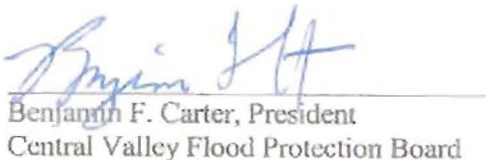 Benjamin F. Carter, President
Central Valley Flood Protection Board